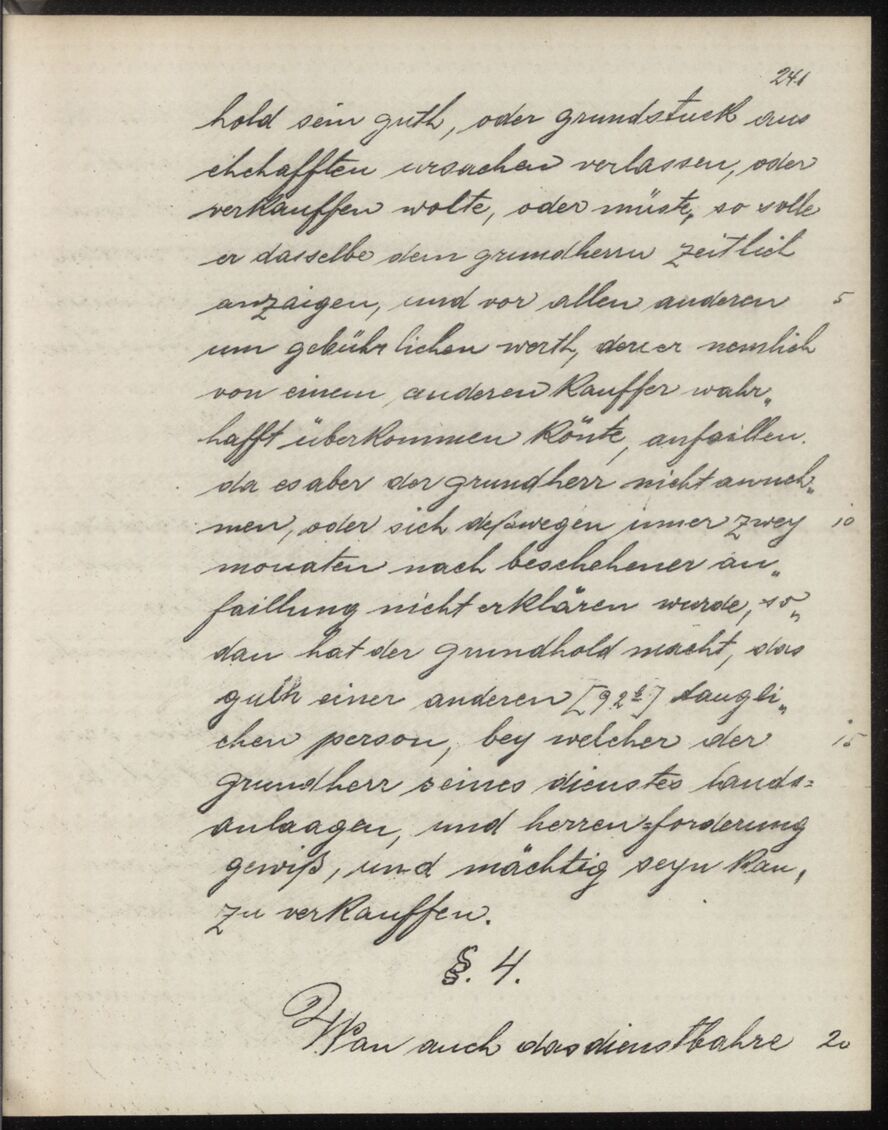 241
hold sein guth, oder grundstuck aus
ehehafften ursachen verlassen, oder
verkauffen wolte, oder müste, so solle
er dasselbe dem grundherrn zeitlich
anzaigen, und vor allen anderen 5
um gebührlichen werth, den er nemlich
von einem anderen Kauffer wahr„
hafft überkommen könte, anfaillen.
da es aber der grundherr nicht anneh„
men, oder sich deßwegen inner zwey 10
monaten nach beschehener an„
faillung nicht erklären wurde, so„
dan hat der grundhold macht, das
guth einer anderen [92b] taugli„
chen person, bey welcher der 15
grundherr seines dienstes lands=
anlaagen, und herren=forderung
gewiß, und mächtig seyn kan,
zu verkauffen.
§. 4.
Wan auch das dienstbahre 20